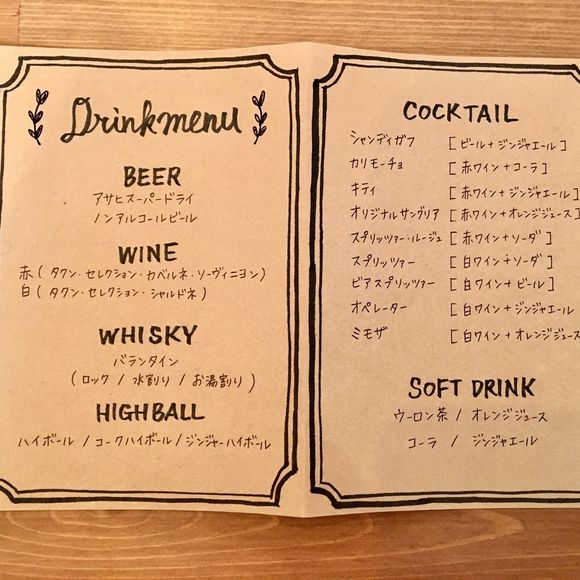 Drinkmenu
BEER
アサヒスーパードライ
ノンアルコールビール
WINE
赤 ( タクン・セレクション・カベルネ・ソーヴィニヨン )
白 ( タクン・セレクション・シャルドネ )
WHISKY
バランタイン
( ロック / 水割り / お湯割り )
HIGHBALL
ハイボール / コークハイボール / ジンジャーハイボール
COCKTAIL
シャンディガフ [ ビール + ジンジャエール ]
カリモーチョ [ 赤ワイン + コーラ ]
キティ [ 赤ワイン + ジンジャエール ]
オリジナルサングリア [ 赤ワイン + オレンジジュース ]
スプリッツァー・ルージュ [ 赤ワイン + ソーダ ]
スプリッツァー [ 白ワイン + ソーダ ]
ビアスプリッツァー [ 白ワイン + ビール ]
オペレーター [ 白ワイン + ジンジャエール
ミモザ [ 白ワイン + オレンジジュース
SOFT DRINK
ウーロン茶 / オレンジジュース
コーラ / ジンジャエール